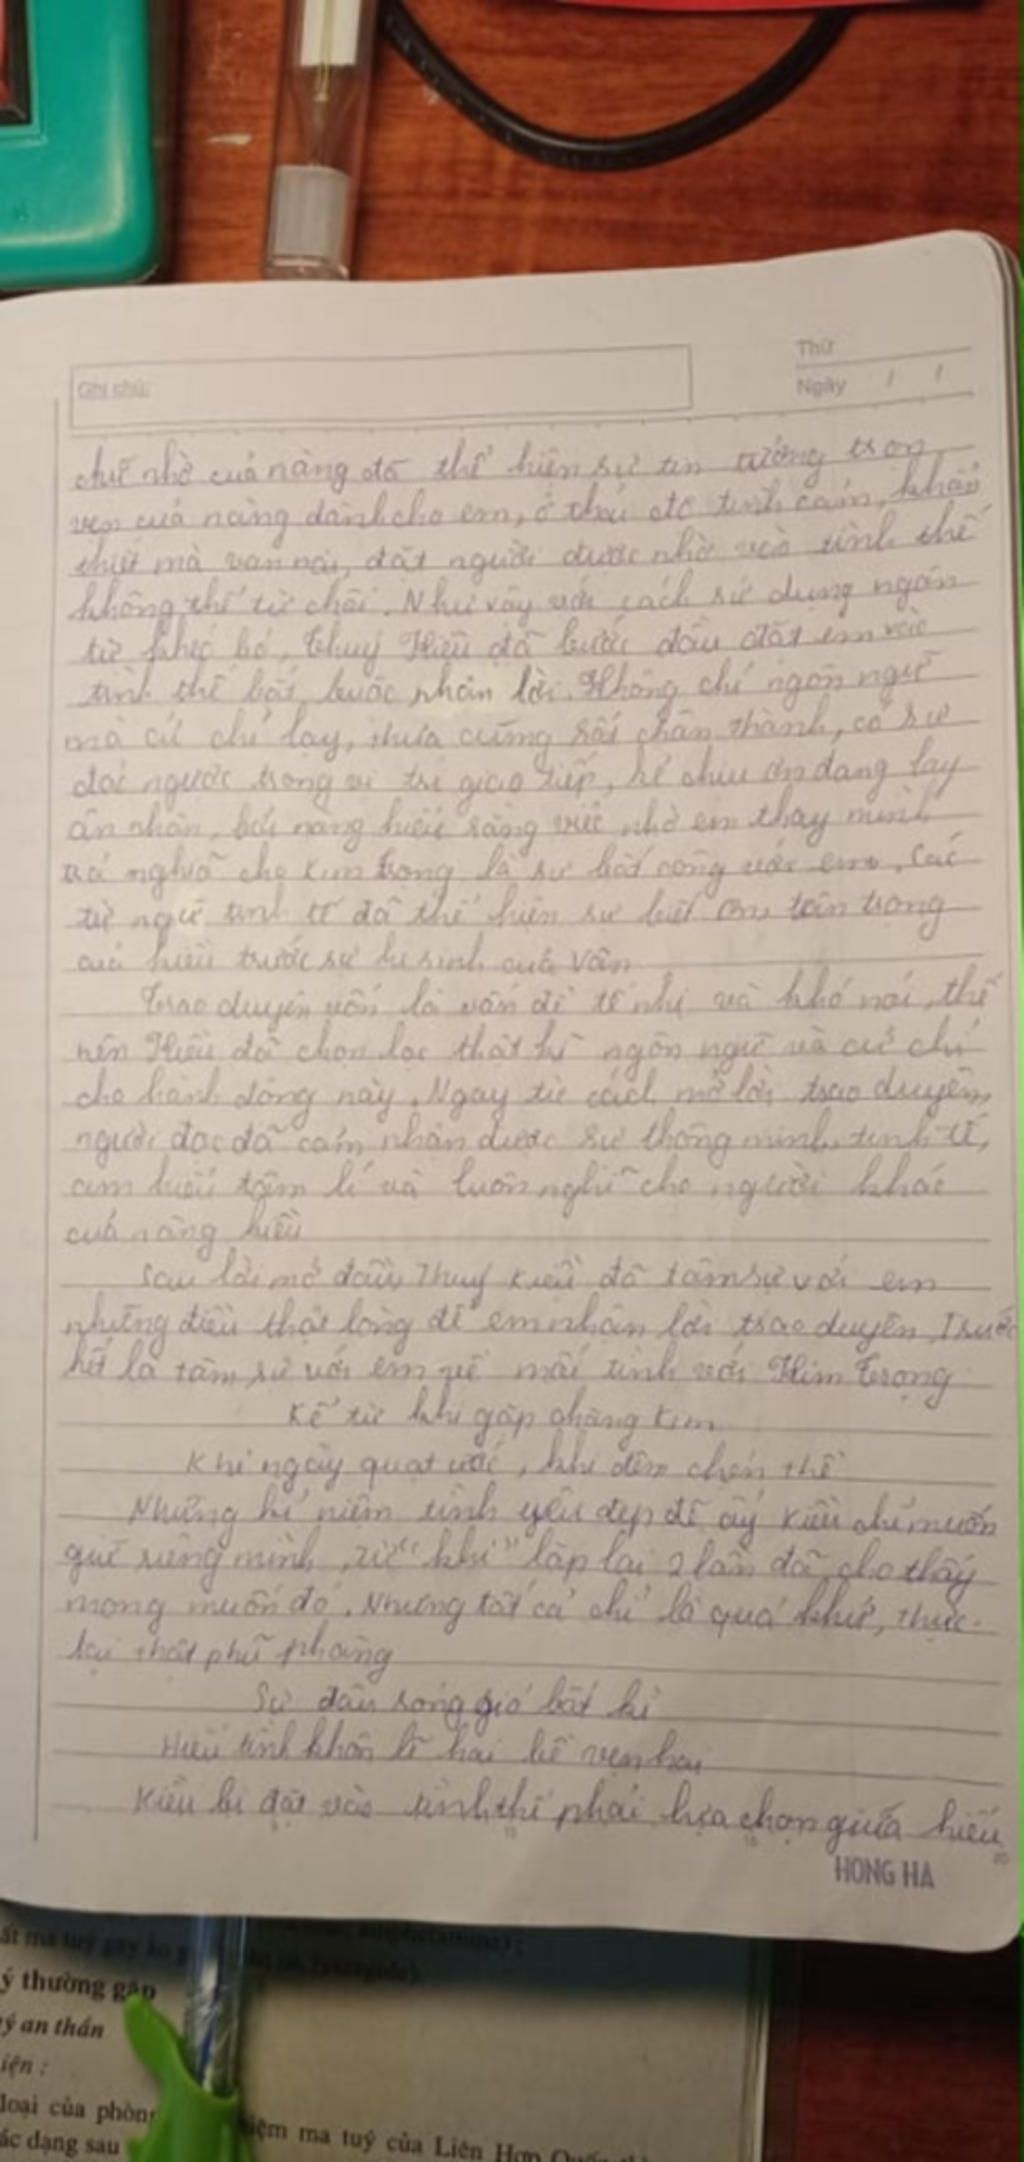 Ghi chú:
Thứ
Ngày / /
chữ nhờ của nàng đã thể hiện sự tin tưởng trọn
vẹn của nàng dành cho em, ở thái độ tình cảm, khẩn
thiết mà van nài, đặt người được nhờ vào tình thế
không thể từ chối. Như vậy với cách sử dụng ngôn
từ khéo léo, Thuý Kiều đã bước đầu đặt em vào
tình thế bắt buộc nhận lời. Không chỉ ngôn ngữ
mà cử chỉ lạy, thưa cũng rất chân thành, có sự
đảo ngược trong vị trí giao tiếp, kẻ chịu ơn đang lạy
ân nhân, bởi nàng hiểu rằng việc nhờ em thay mình
trả nghĩa cho Kim Trọng là sự bất công với em. Các
từ ngữ tinh tế đã thể hiện sự biết ơn, trân trọng
của kiều trước sự hi sinh của Vân
Trao duyên vốn là vấn đề tế nhị và khó nói, thế
nên Kiều đã chọn lọc thật kĩ ngôn ngữ và cử chỉ
cho hành động này. Ngay từ cách mở lời trao duyên,
người đọc đã cảm nhận được sự thông minh, tinh tế,
am hiểu tâm lí và luôn nghĩ cho người khác
của nàng kiều
Sau lời mở đầu, Thuý Kiều đã tâm sự với em
những điều thật lòng để em nhận lời trao duyên. Trước
hết là tâm sự với em về mối tình với Kim Trọng
Kể từ khi gặp chàng Kim
Khi ngày quạt ước, khi đêm chén thề
Những kỉ niệm tình yêu đẹp đẽ ấy Kiều chỉ muốn
giữ riêng mình, từ "khi" lặp lại 2 lần đã cho thấy
mong muốn đó. Nhưng tất cả chỉ là quá khứ, thực
tại thật phũ phàng
Sự đâu sóng gió bất kì
Hiếu tình khôn lẽ hai bề vẹn hai
Kiều bị đặt vào tình thế phải lựa chọn giữa hiếu
HONG HA
ý thường gặp
ý an thần
iện :
loại của phòng
iệm ma tuý của Liên Hợp Quốc
ác dạng sau